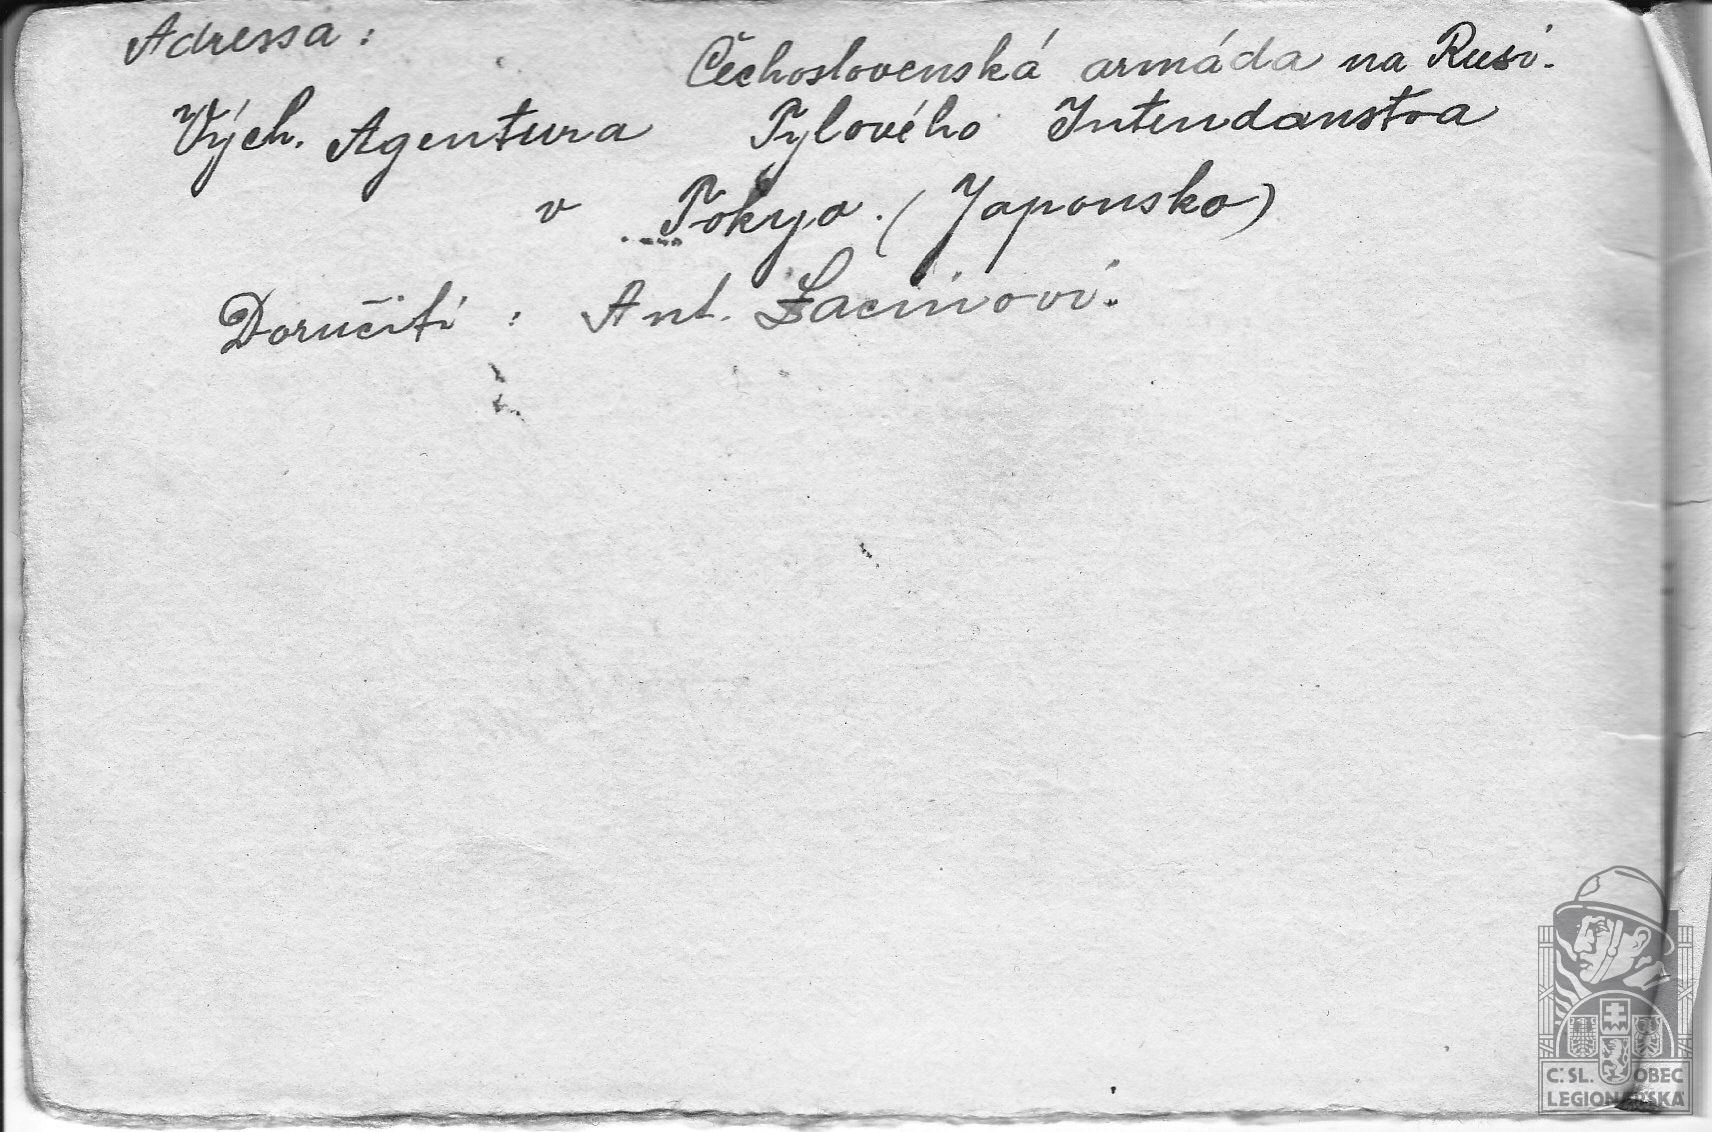 Adressa :
Čechoslovenská armáda na Rusi.
Vých. Agentura Tylového Intendanstva
v Tokyo. (Japonsko)
Doručiti : Ant. Lacinovi.
Č. SL. OBEC
LEGIONÁŘSKÁ